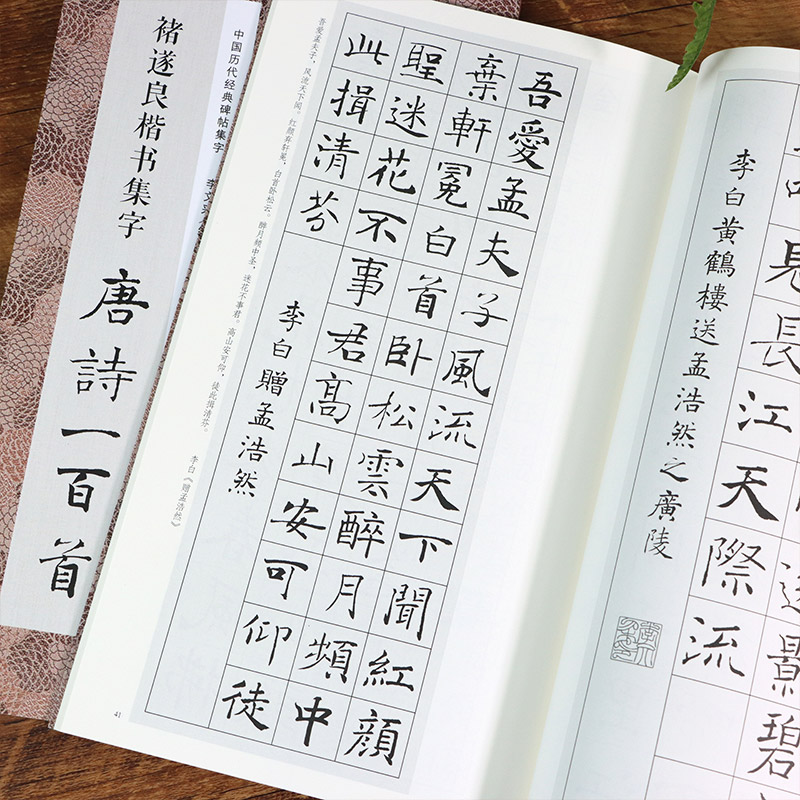 褚遂良楷书集字
唐詩一百首
中国历代经典碑帖集字
李文采
吾愛孟夫子風流天下聞紅顏
棄軒冕白首卧松雲醉月頻中
聖迷花不事君高山安可仰徒
此揖清芬
李白贈孟浩然
吾爱孟夫子，风流天下闻。红颜弃轩冕，白首卧松云。醉月频中圣，迷花不事君。高山安可仰，徒此揖清芬。
李白《赠孟浩然》
41
影碧
見長江天際流
李白黄鶴樓送孟浩然之廣陵